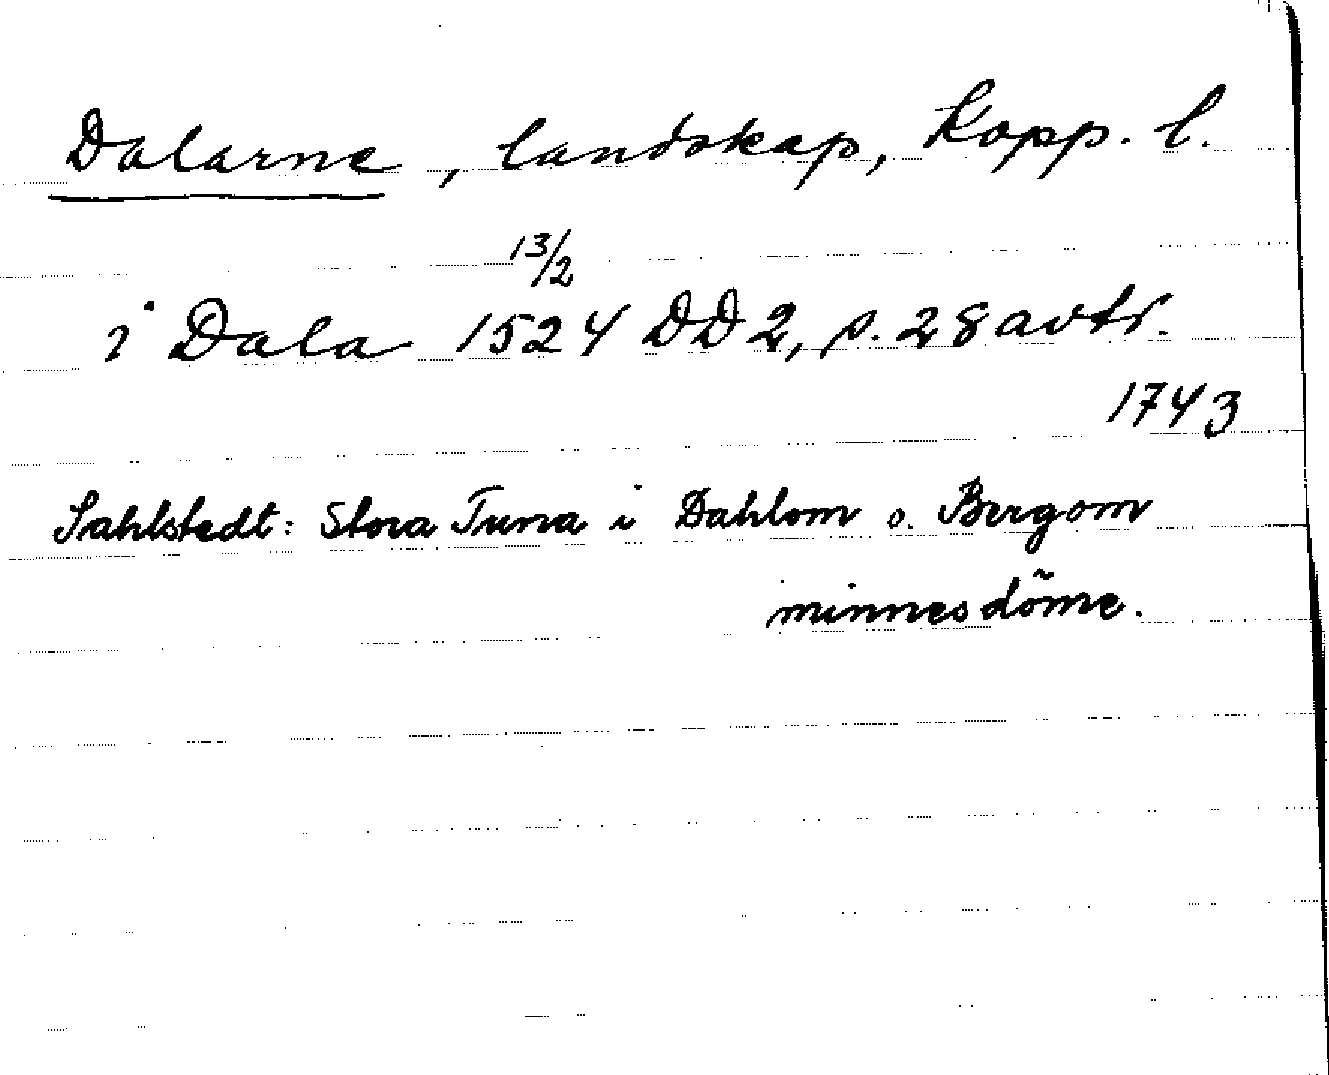 Dalarne, landskap, Kopp. l.
13/2
i Dala 1524 DD 2, s. 28 avtr.
1743
Sahlstedt: Stora Tuna i Dahlom o. Bergom
minnesdöme.